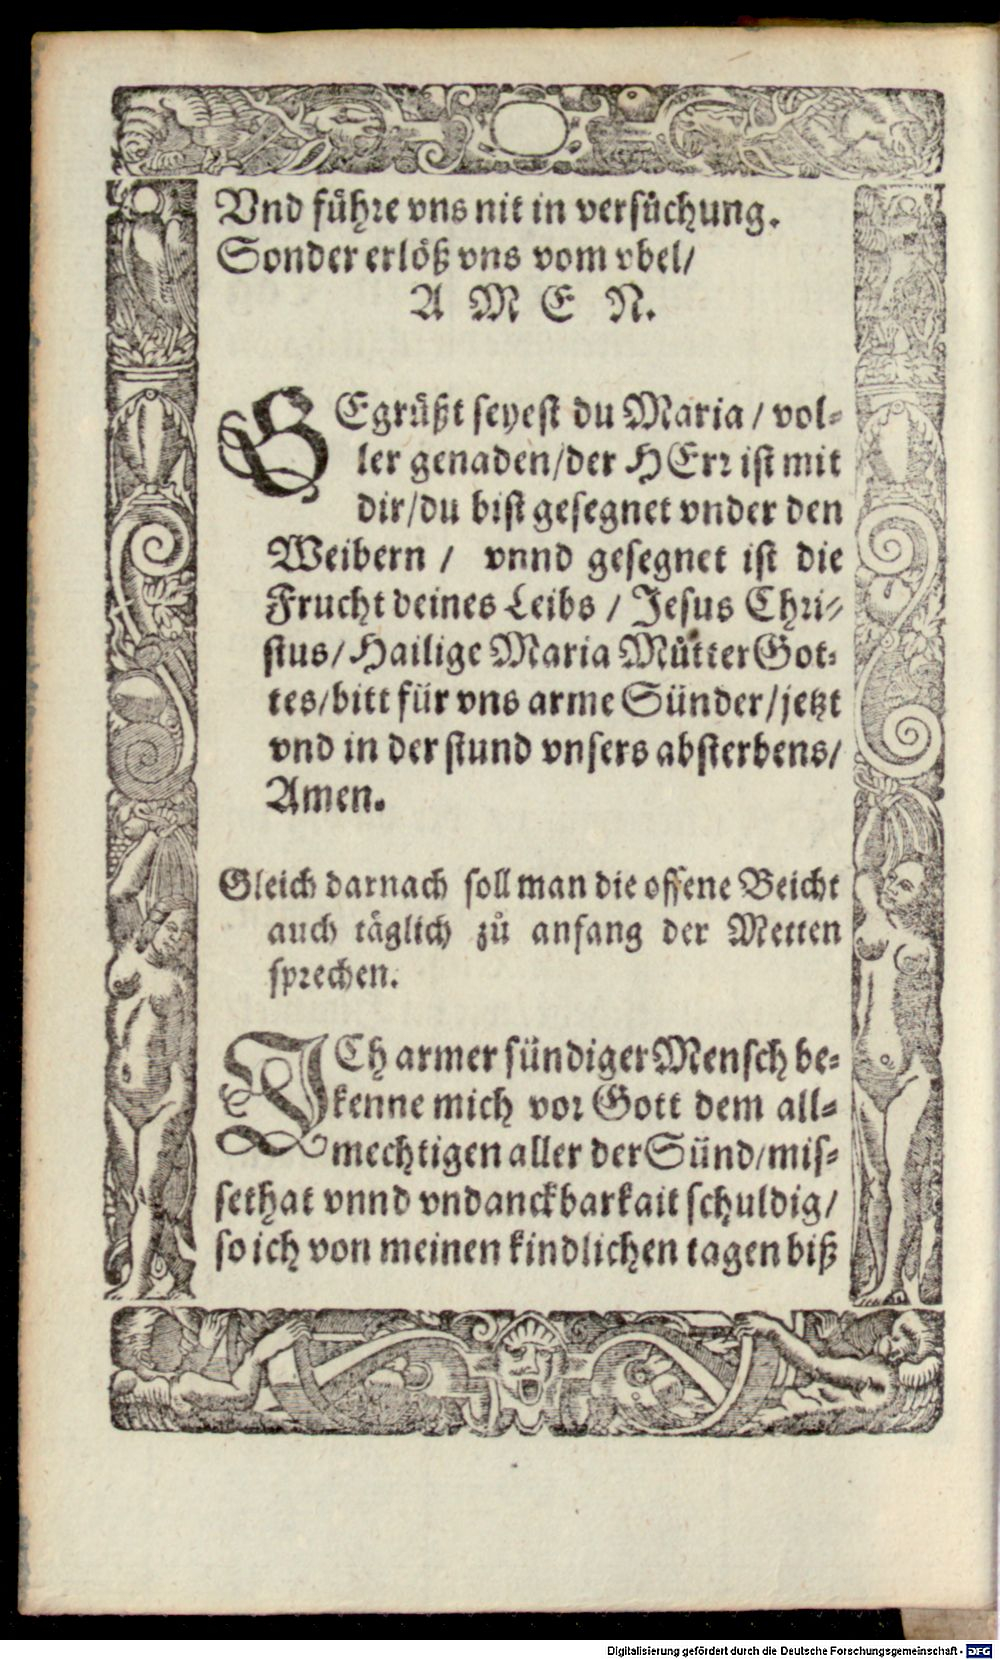 Vnd führe vns nit in versůchung.
Sonder erlöß vns vom vbel/
A M E N.
GEgrüßt seyest du Maria / vol-
ler genaden/der HErr ist mit
dir/du bist gesegnet vnder den
Weibern / vnnd gesegnet ist die
Frucht deines Leibs / Jesus Chri-
stus/Hailige Maria Můtter Got-
tes/bitt für vns arme Sünder/jetzt
vnd in der stund vnsers absterbens/
Amen.
Gleich darnach soll man die offene Beicht
auch täglich zů anfang der Metten
sprechen.
ICh armer sündiger Mensch be-
kenne mich vor Gott dem all-
mechtigen aller der Sünd/mis-
sethat vnnd vndanckbarkait schuldig/
so ich von meinen kindlichen tagen biß
Digitalisierung gefördert durch die Deutsche Forschungsgemeinschaft - DFG